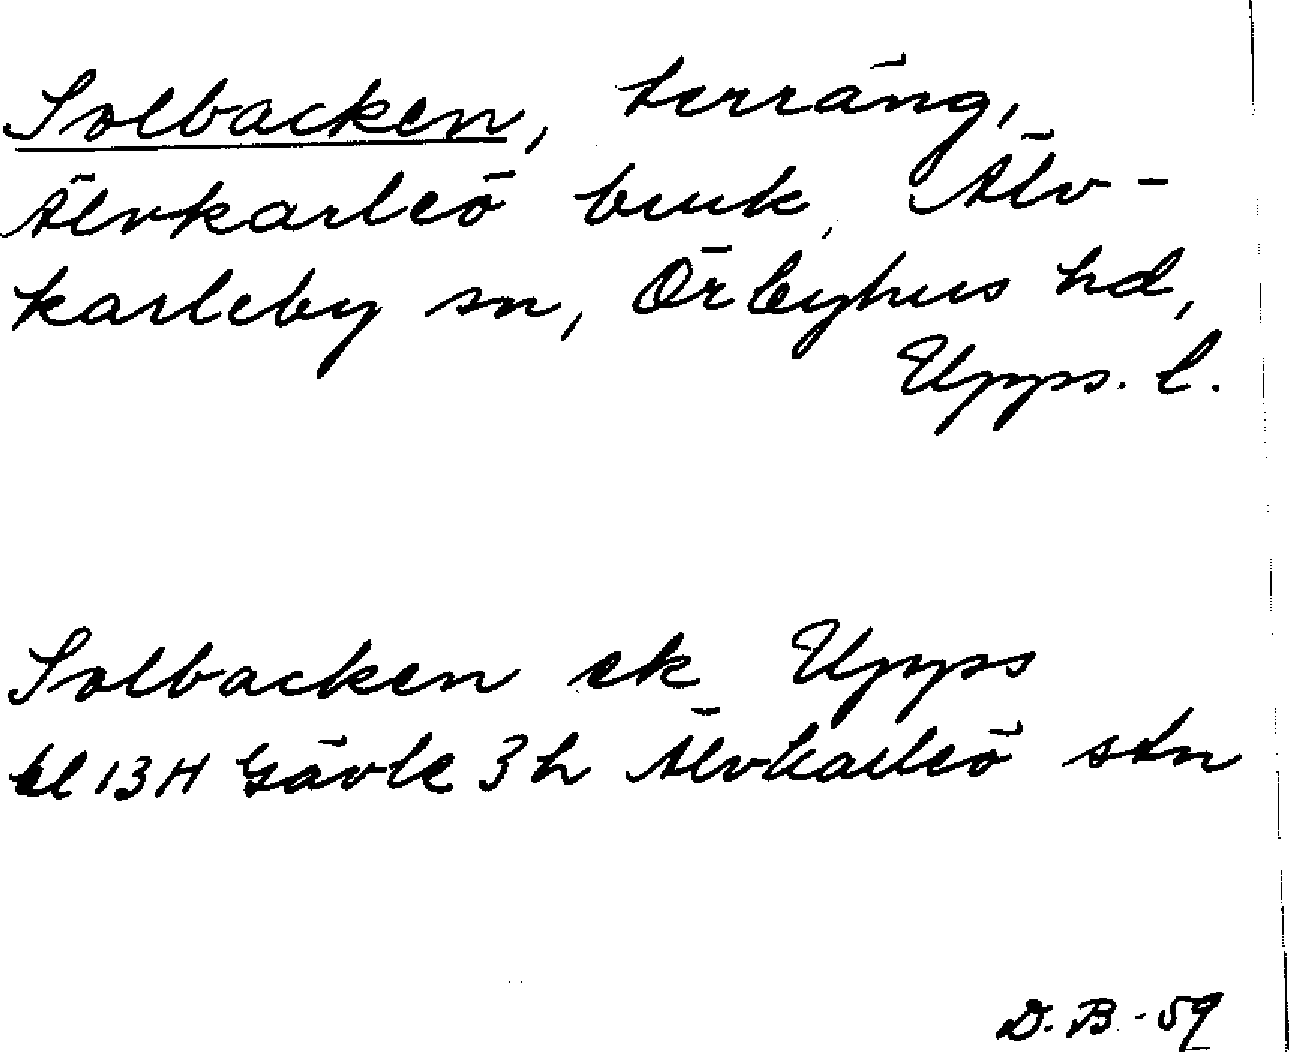 Solbacken, terräng,
Älvkarleö bruk, Älv-
karleby sn, Örbyhus hd,
Upps. l.
Solbacken ek Upps
bl 13H Gävle 3h Älvkarleö stn
D. B. -59